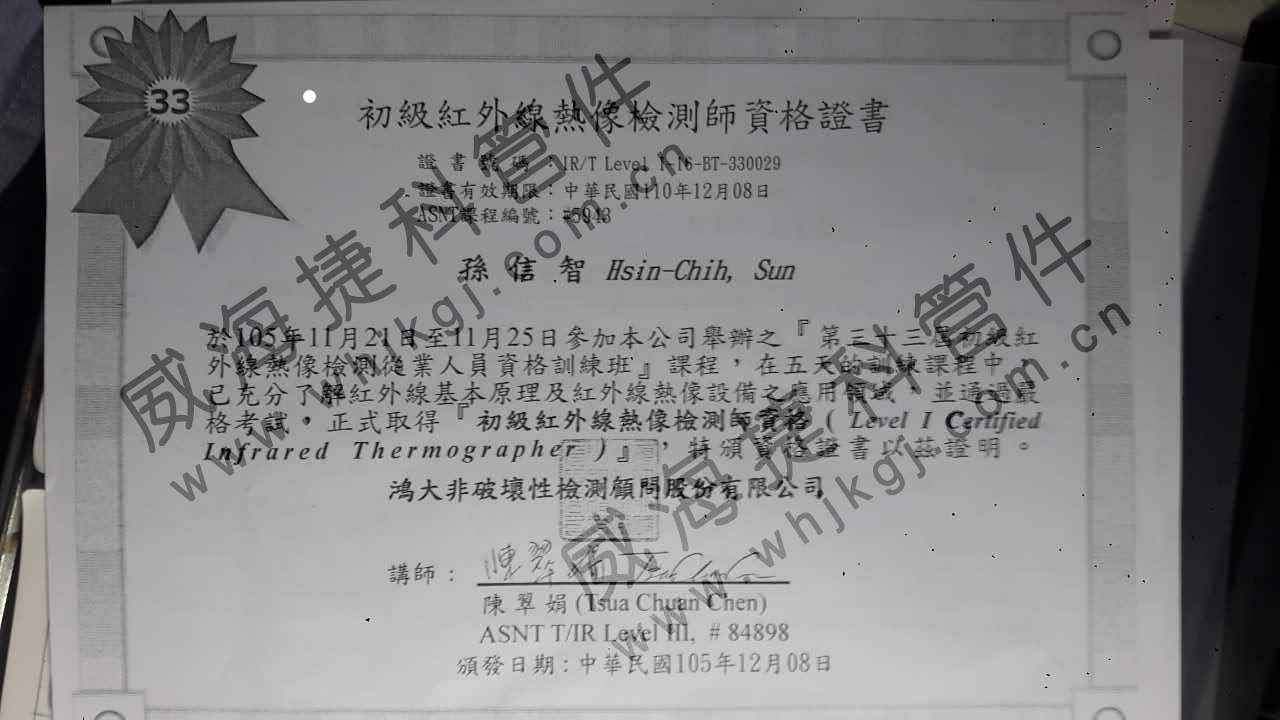 33
初級紅外線熱像檢測師資格證書
證書號碼：IR/T Level I-16-BT-330029
證書有效期限：中華民國110年12月08日
ASNT課程編號：#5943
孫信智 Hsin-Chih, Sun
於105年11月21日至11月25日參加本公司舉辦之『第三十三屆初級紅
外線熱像檢測從業人員資格訓練班』課程，在五天的訓練課程中，
已充分了解紅外線基本原理及紅外線熱像設備之應用領域，並通過嚴
格考試，正式取得『初級紅外線熱像檢測師資格( Level I Certified
Infrared Thermographer )』，特頒資格證書以茲證明。
鴻大非破壞性檢測顧問股份有限公司
講師：
陳翠娟 (Tsua Chuan Chen)
ASNT T/IR Level III, # 84898
頒發日期：中華民國105年12月08日
威海捷科管件
www.whjkgj.com.cn
威海捷科管件
www.whjkgj.com.cn